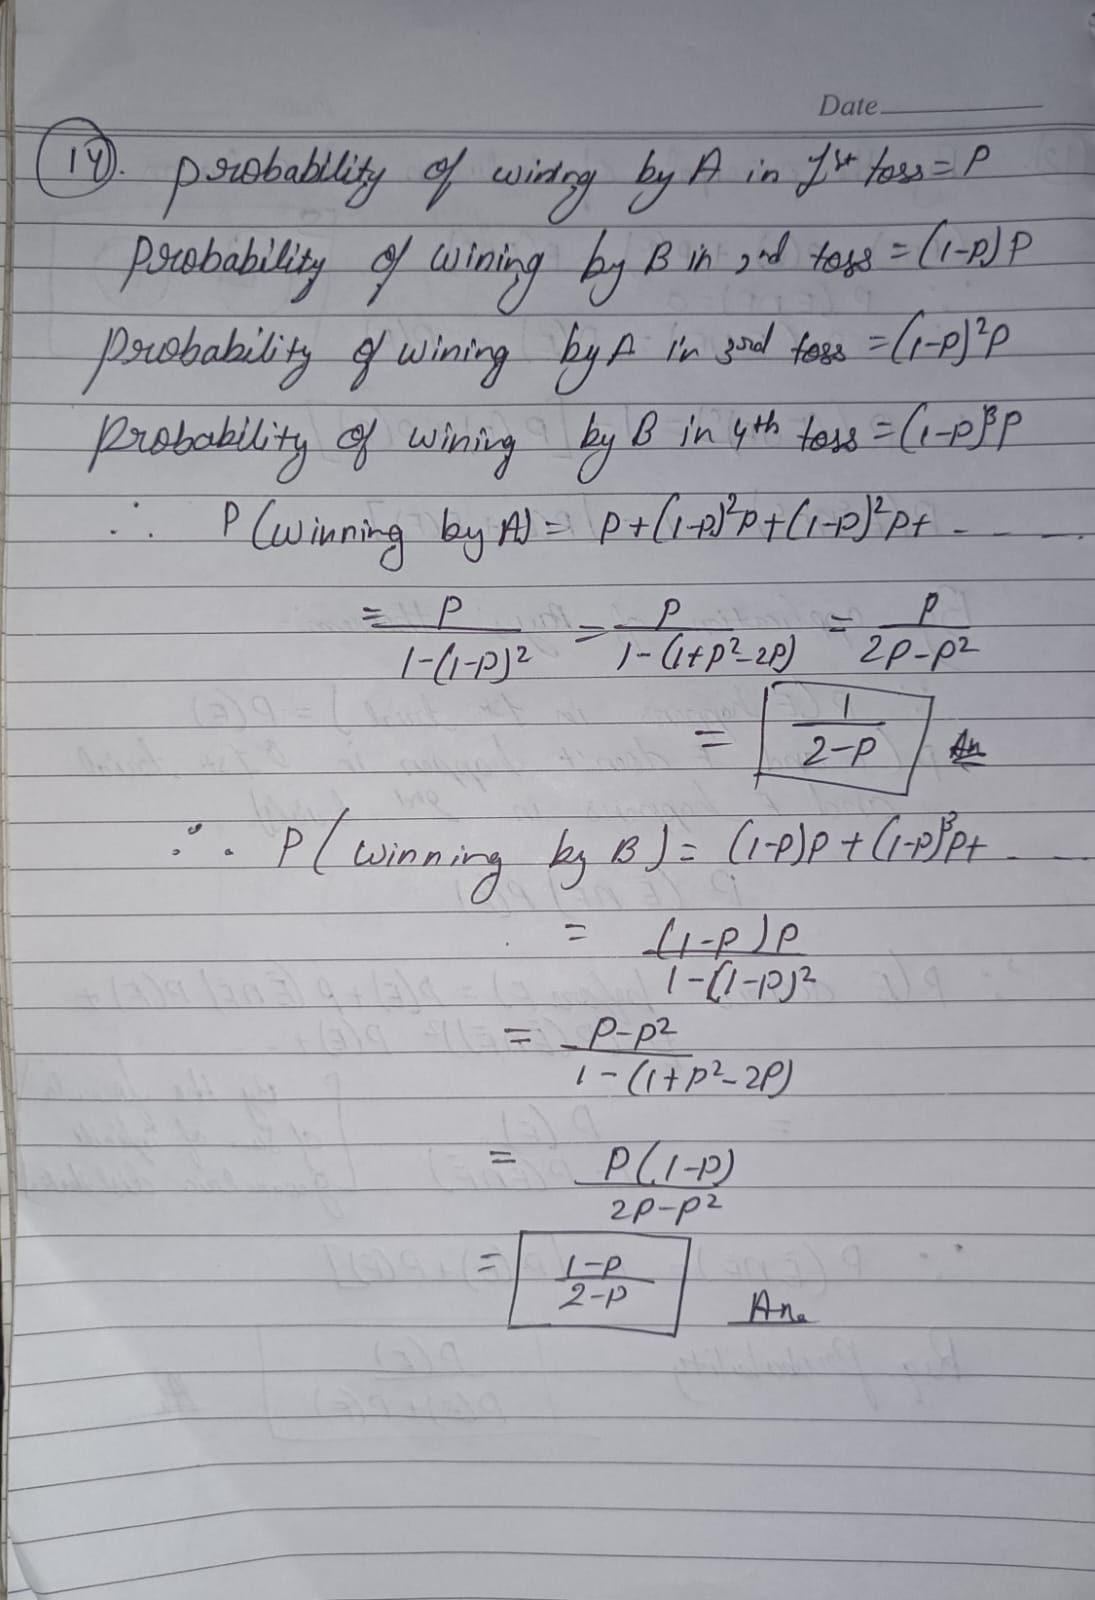 Date
14. probability of wining by A in 1st toss = P
Probability of wining by B in 2nd toss = (1-P)P
Probability of wining by A in 3rd toss = (1-P)²P
Probability of wining by B in 4th toss = (1-P)³P
∴ P(winning by A) = P+(1-P)²P+(1-P)²P+ - - -
= P/(1-(1-P)²) = P/(1-(1+P²-2P)) = P/(2P-P²)
= 1/(2-P) An
∴ P(winning by B) = (1-P)P + (1-P)³P+ - - -
= (1-P)P/(1-(1-P)²)
= (P-P²)/(1-(1+P²-2P))
= P(1-P)/(2P-P²)
= (1-P)/(2-P) Ans